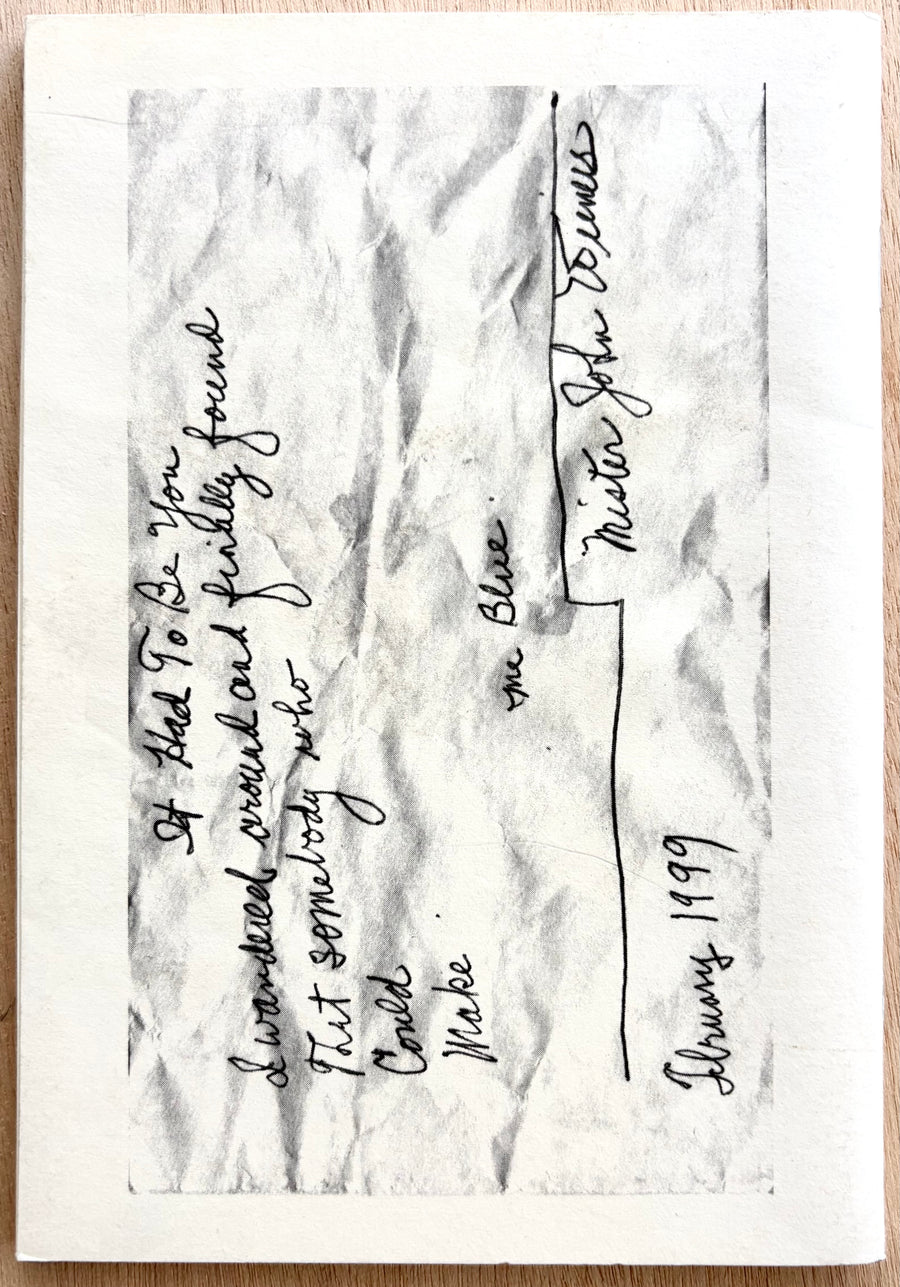 It Had To Be You
I wandered around and finially found
That somebody who
Could
Make me Blue
Mister John Wieners
February 1999